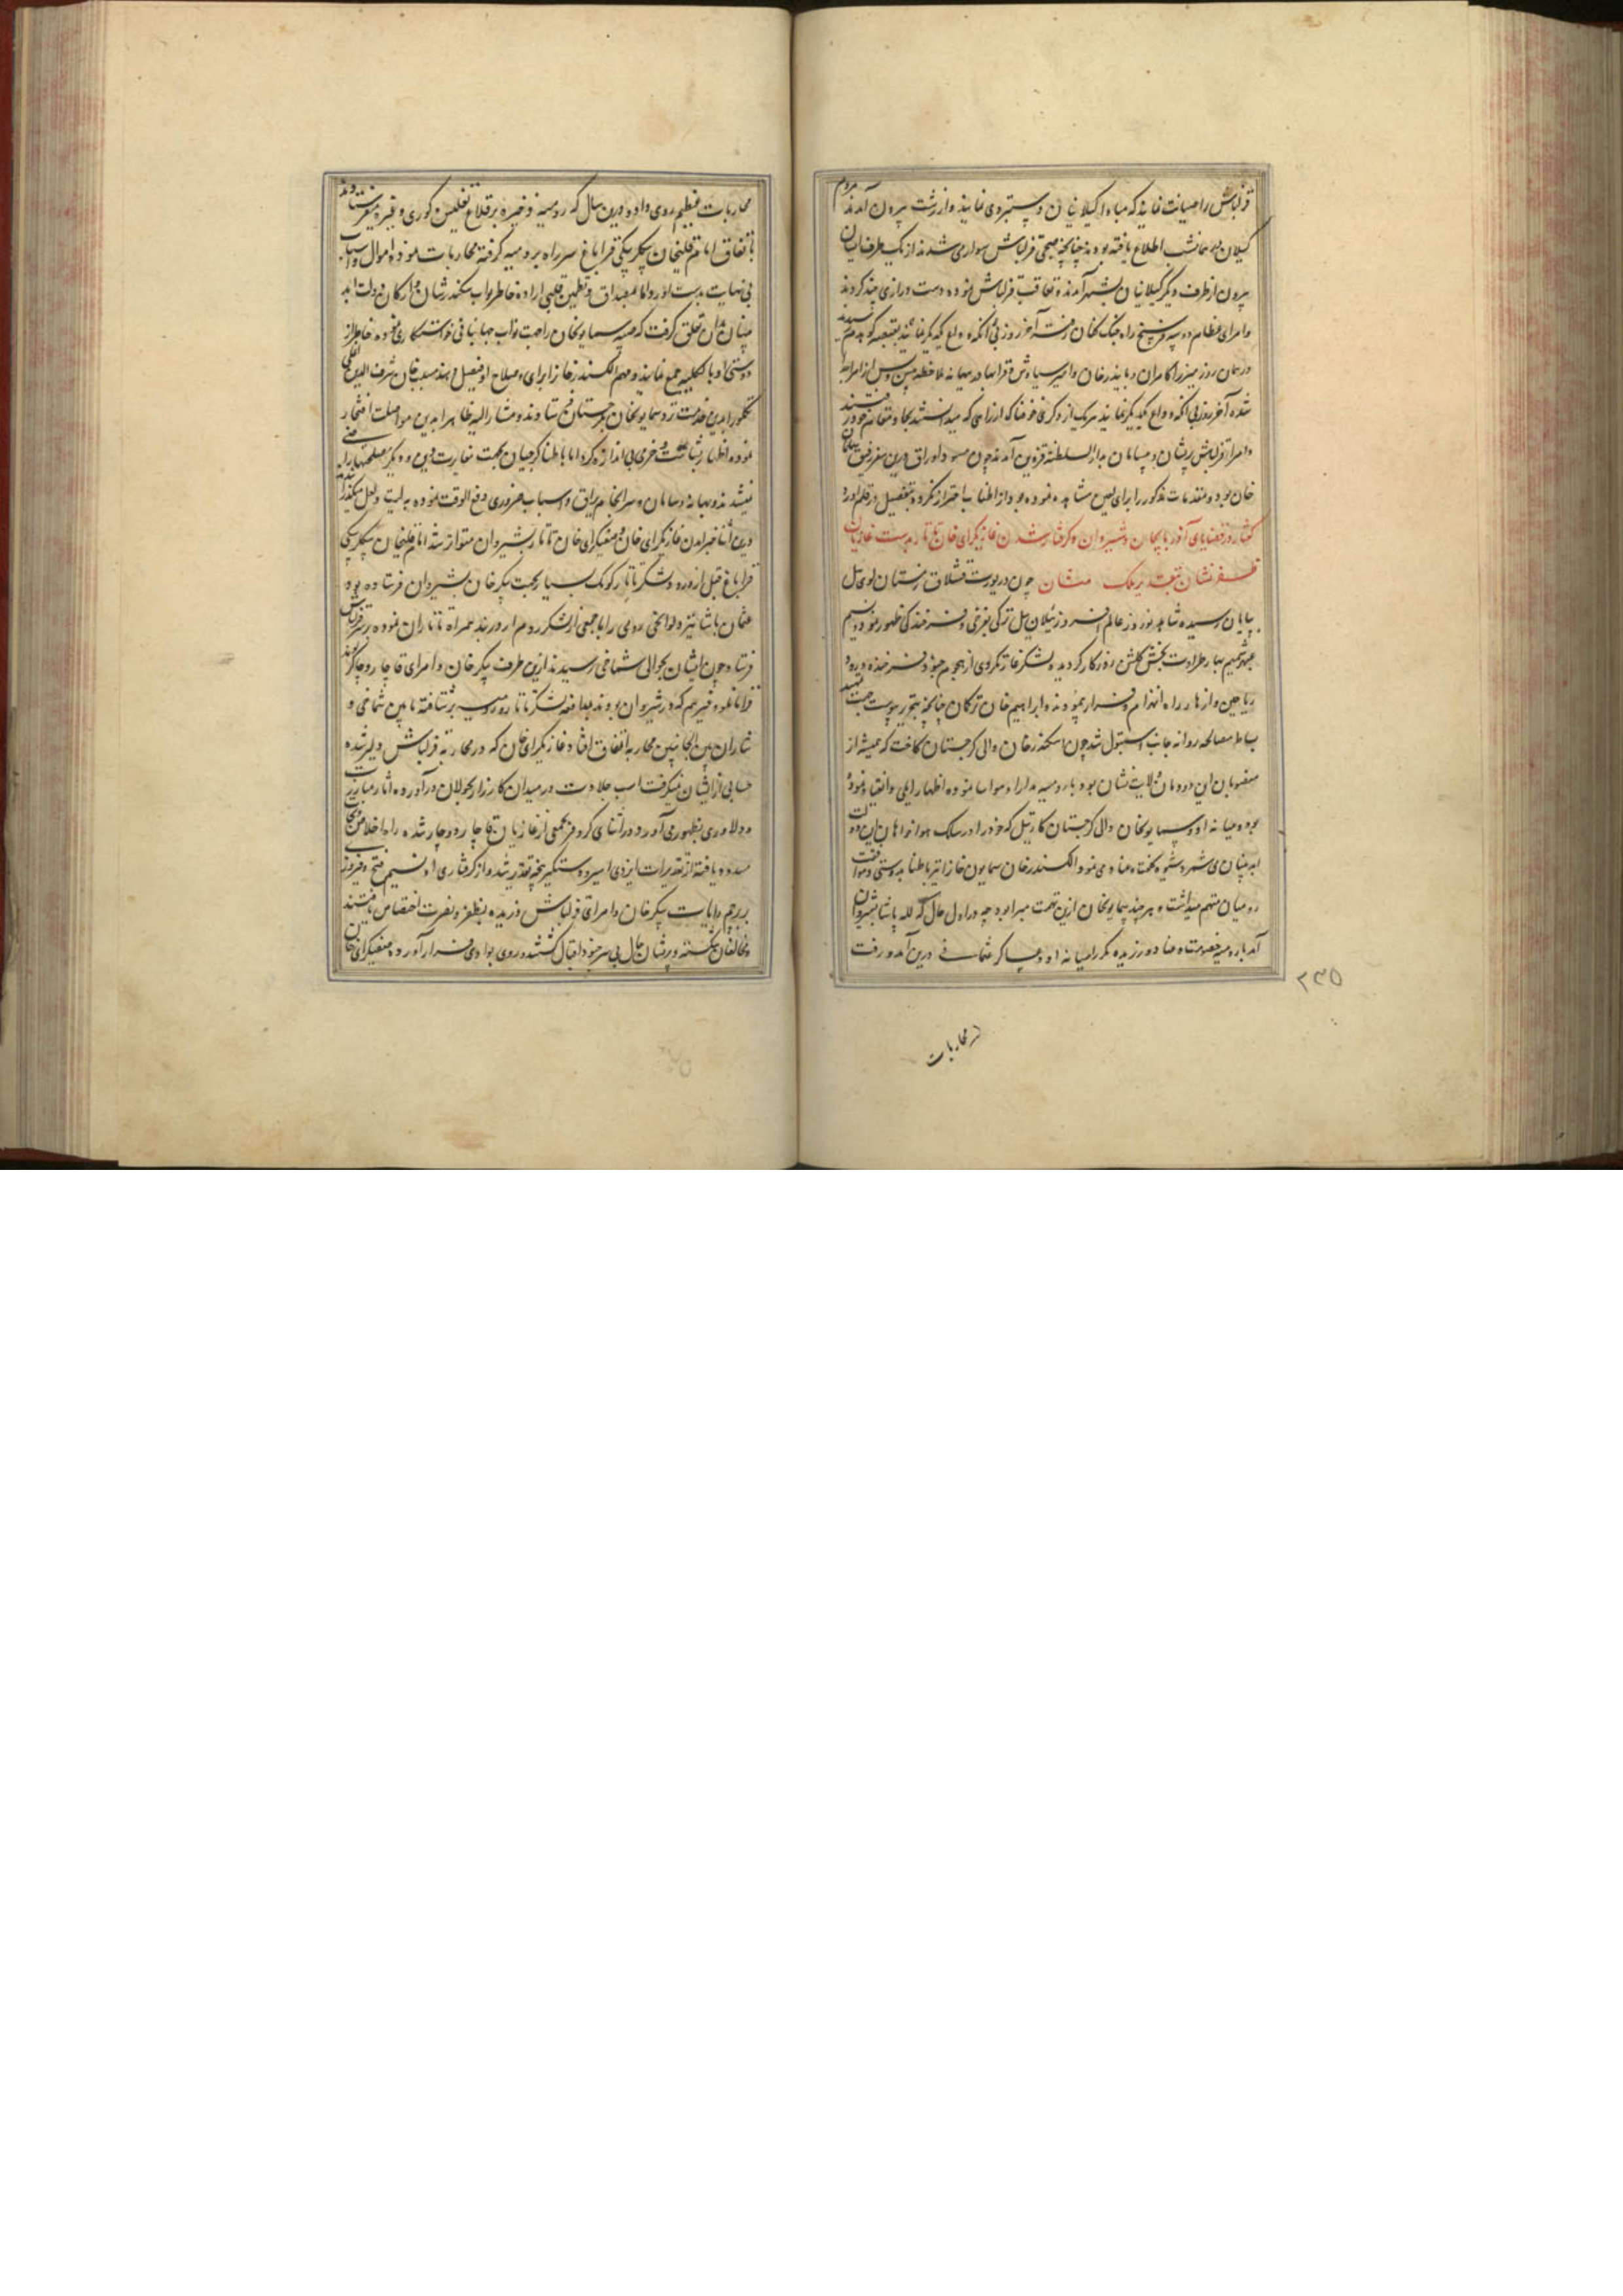 قزلباش را صیانت نمایند که مبادا گیلانیان دستبردی نمایند و از رشت بیرون آمدند مردم
گیلان در همان شب اطلاع یافته بودند چنانچه صبحی قزلباش سوار می شدند از یک طرف ایشان
بیرون از طرف دیگر گیلانیان بشهر آمدند و تعاقب قزلباش نموده دست درازی چند کردند
و امرای عظام دو سه فرسخ راه جنگ کنان رفتند آخر روز بی آنکه وداع یکدیگر نمایند بقصبه کوهدم رسیدند
در همان روز میرزا کامران و بایندرخان و امیر سیاوش و قرابهادر بهانه ملاحظه پس و پیش از امرا جدا
شده آخر روز بی آنکه وداع یکدیگر نمایند هر یک از دیگری خوفناک از راهی که میدانستند بجا و مقام خود رفتند
و امرا و قزلباش پریشان و بیسامان بدار السلطنه قزوین آمدند چون مسود اوراق درین سفر رفیق
خان بود و مقدمات مذکور را برای العین مشاهده نموده بود از اطناب احتراز نکرده بتفصیل در قلم آورد
گفتار در قضایای آذربایجان و شیروان و گرفتار شدن غازیگرای خان تاتار بدست غازیان
ظفرنشان بتقدیر ملک منان چون در یورت قشلاق زمستان لوی ئیل
بپایان رسیده شاهد نوروز عالم افروز ئیلان ئیل ترکی بفرخی و فرخندگی ظهور نمود و نسیم
عنبر شمیم بهار طراوت بخش گلشن روزگار گردیده لشکر غارتگر دی از هجوم جنود فرخنده ورود
ریاحین و ازهار راه انهزام و فرار پیمودند ابراهیم خان ترکمان چنانچه بتحریر پیوست جهت تمهید
بساط مصالحه روانه جانب استنبول شد چون اسکندرخان والی گرجستان کاخت که همیشه از
منصوبان این دودمان ولایت نشان بود با رومیه مدارا و مواسا نموده اظهار ایلی و انقیاد نموده
بود و میانه او و سمایونخان والی گرجستان کارتیل که خود را در سلک هواخواهان این دولت
ابد بنیان می شمرد شیوه عناد می نمود الکسندرخان سمایون خان را نیز باطنا بدوستی و موافقت
رومیان متهم میداشت و هر چند سمایونخان ازین تهمت مبرا بود چه در اول حال که لله پاشا بشیروان
آمد با رومیه خصومت و عناد ورزیده مکررا میانه او و عساکر عثمانی درین آمد و رفت
۲۳۵
محاربات
محاربات عظیم روی داد و درین سال که رومیه ذخیره بر قلاع تفلیس و کوری و غیره میفرستادند
باتفاق امام قلیخان بیگلربیگی قراباغ سر راه بر رومیه گرفته محاربات نموده اموال و اسباب
بی نهایت بدست آورد اما لمصداق و تطمئن قلبی اراده خاطر نواب سکندرشان و ارکان دولت ابد
بنیان بدان تعلق گرفت که صبیه سمایونخان را جهت نواب جهانبانی خواستگاری نموده خاطر از
دوستی او بالکلیه جمع نمایند و مهم الکسندرخان را برای و صلاح او فیصل دهند مسیب خان شرف الدین اغلی
تکلو را بدین خدمت نزد سمایونخان بگرجستان فرستادند و مشارالیه ظاهرا بدین مواصلت افتخار
نموده اظهار بشاشت و خرمی بی اندازه کرد اما باطنا گرجیان بجهت مغایرت دین و دیگر مصلحتها راضی
نمیشدند و بهانه سامان و سرانجام یراق و اسباب ضروری دفع الوقت نموده به لیت و لعل میگذرانیدند
درین اثنا خبر آمدن غازیگرای خان و صفیگرای خان تاتار بشیروان متواتر شد امام قلیخان بیگلربیگی
قراباغ قبل از ورود لشکر تاتار کومک بسیار بجهت پیکرخان بشیروان فرستاده بود
عثمان پاشا نیز رومی را با جمعی از لشکر روم از دربند همراه تاتاران نموده بر سر قزلباش
فرستاد چون ایشان بحوالی شماخی رسیدند ازین طرف پیکرخان و امرای قاجار و چاکرلو
قراباغ و غیرهم که در شیروان بودند بمدافعه لشکر تاتار و رومیه شتافته مابین شماخی و
شابران بین الجانبین محاربه اتفاق افتاد غازیگرای خان که در محاربه قزلباش دلیر شده
حسابی از ایشان نمیگرفت اسب جلادت در میدان کارزار بجولان درآورده آثار مبارزت
و دلاوری بظهور می آورد در اثنای کر و فر بجمعی از غازیان قاجار دوچار شده راه خلاص و نجات
مسدود یافته از تقدیرات ایزدی اسیر و دستگیر پنجه تقدیر شد و از گرفتاری او نسیم فتح و فیروزی
بر پرچم رایات پیکرخان و امرای قزلباش وزیده بظفر و نصرت اختصاص یافتند
مخالفان شکسته و پریشان حال بی سر جنود اقبال گشته روی بوادی فرار آورد و صفیگرای خان